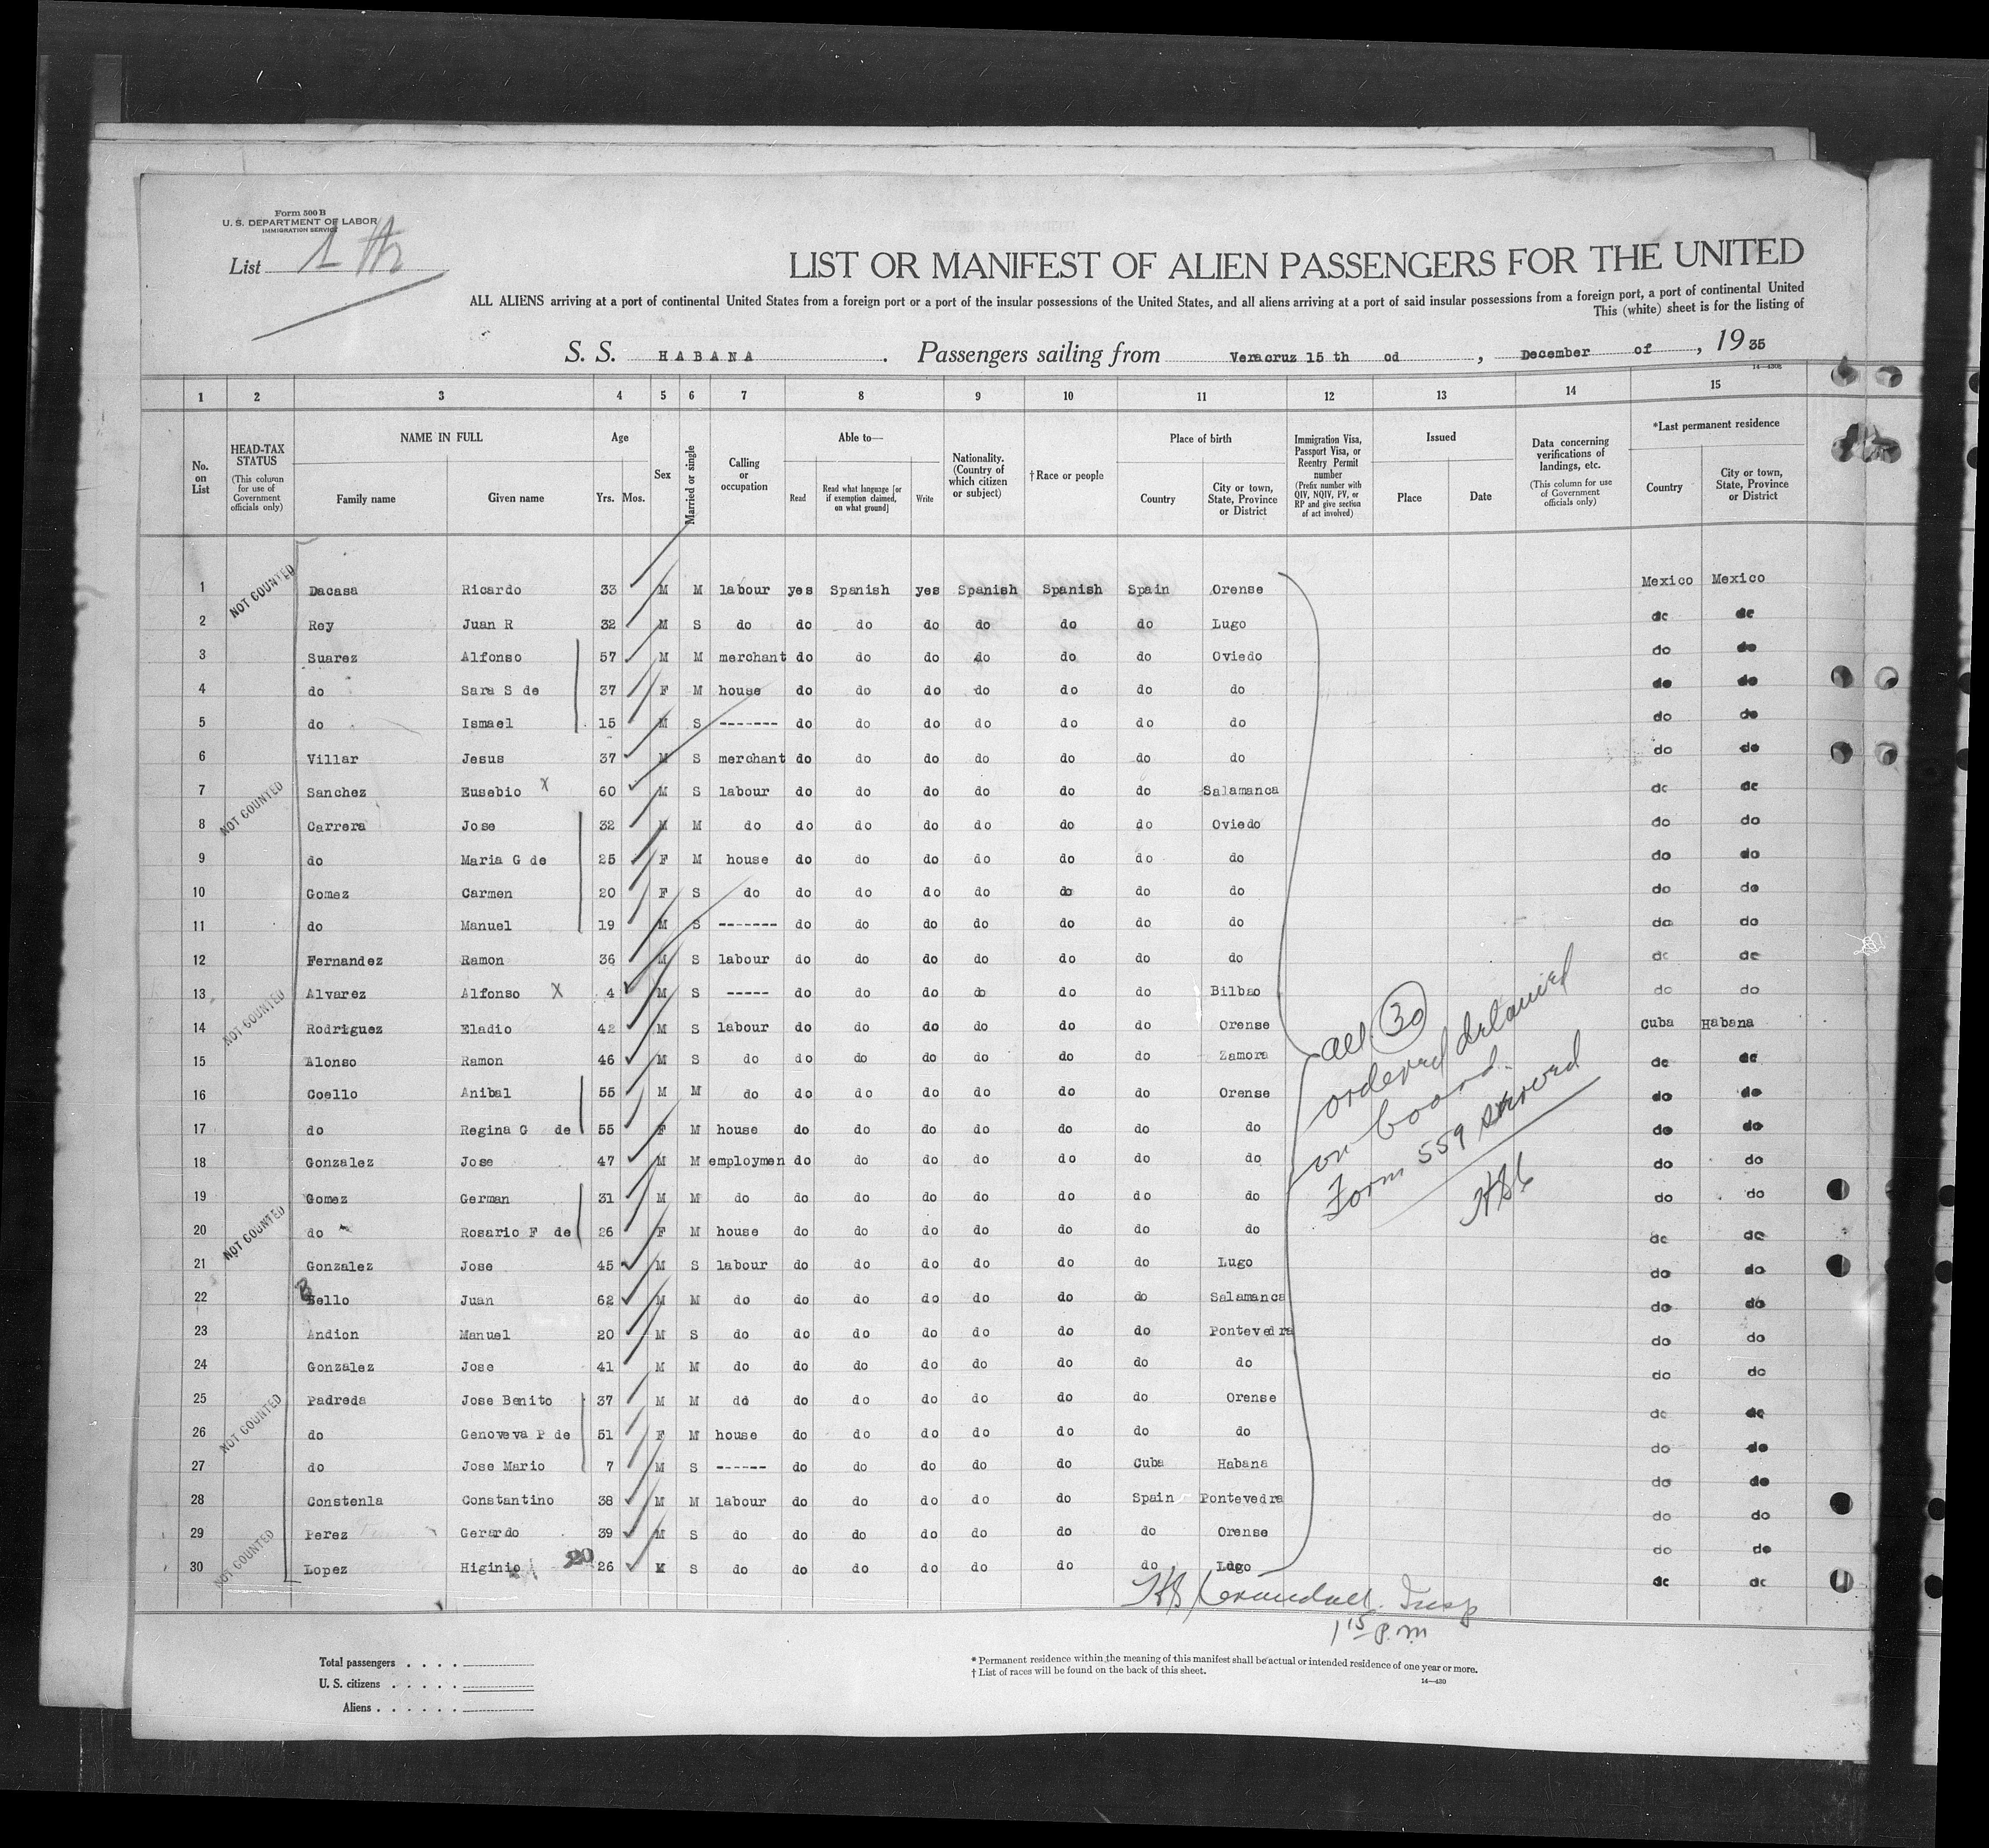 Form 500 B
U. S. DEPARTMENT OF LABOR
IMMIGRATION SERVICE
List
LIST OR MANIFEST OF ALIEN PASSENGERS FOR THE UNITED
ALL ALIENS arriving at a port of continental United States from a foreign port or a port of the insular possessions of the United States, and all aliens arriving at a port of said insular possessions from a foreign port, a port of continental United
This (white) sheet is for the listing of
S. S. HABANA . Passengers sailing from Veracruz 15 th od , December of , 19 35
14—430B
1 2 3 4 5 6 7 8 9 10 11 12 13 14 15
No. on List
HEAD-TAX STATUS (This column for use of Government officials only)
NAME IN FULL
Family name Given name
Age
Yrs. Mos.
Sex
Married or single
Calling or occupation
Able to—
Read
Read what language [or if exemption claimed, on what ground]
Write
Nationality. (Country of which citizen or subject)
†Race or people
Place of birth
Country
City or town, State, Province or District
Immigration Visa, Passport Visa, or Reentry Permit number (Prefix number with QIV, NQIV, PV, or RP and give section of act involved)
Issued
Place Date
Data concerning verifications of landings, etc. (This column for use of Government officials only)
*Last permanent residence
Country
City or town, State, Province or District
1 NOT COUNTED Dacasa Ricardo 33 M M labour yes Spanish yes Spanish Spanish Spain Orense Mexico Mexico
2 Rey Juan R 32 M S do do do do do do do Lugo do do
3 Suarez Alfonso 57 M M merchant do do do do do do Oviedo do do
4 do Sara S de 37 F M house do do do do do do do do do
5 do Ismael 15 M S ------- do do do do do do do do do
6 Villar Jesus 37 M S merchant do do do do do do do do do
7 Sanchez Eusebio X 60 M S labour do do do do do do Salamanca do do
8 NOT COUNTED Carrera Jose 32 M M do do do do do do do Oviedo do do
9 do Maria G de 25 F M house do do do do do do do do do
10 Gomez Carmen 20 F S do do do do do do do do do do
11 do Manuel 19 M S ------- do do do do do do do do do
12 Fernandez Ramon 36 M S labour do do do do do do do do do
13 Alvarez Alfonso X 4 M S ----- do do do do do do Bilbao do do
14 NOT COUNTED Rodriguez Eladio 42 M S labour do do do do do do Orense Cuba Habana
15 Alonso Ramon 46 M S do do do do do do do Zamora do do
16 Coello Anibal 55 M M do do do do do do do Orense do do
17 do Regina G de 55 F M house do do do do do do do do do
18 Gonzalez Jose 47 M M employmen do do do do do do do do do
19 Gomez German 31 M M do do do do do do do do do do
20 NOT COUNTED do Rosario F de 26 F M house do do do do do do do do do
21 Gonzalez Jose 45 M S labour do do do do do do Lugo do do
22 Bello Juan 62 M M do do do do do do do Salamanca do do
23 Andion Manuel 20 M S do do do do do do do Pontevedra do do
24 Gonzalez Jose 41 M M do do do do do do do do do do
25 Padreda Jose Benito 37 M M do do do do do do do Orense do do
26 NOT COUNTED do Genoveva P de 51 F M house do do do do do do do do do
27 do Jose Mario 7 M S ------ do do do do do Cuba Habana do do
28 Constenla Constantino 38 M M labour do do do do do Spain Pontevedra do do
29 Perez Gerardo 39 M S do do do do do do do Orense do do
30 NOT COUNTED Lopez Higinio 20 26 M S do do do do do do do Lugo do do
all 30
ordered detained
on board.
Form 559 served
HSC
Insp
1 15 P.m
Total passengers . . . .
U. S. citizens . . . . .
Aliens . . . . . .
* Permanent residence within the meaning of this manifest shall be actual or intended residence of one year or more.
† List of races will be found on the back of this sheet.
14—430